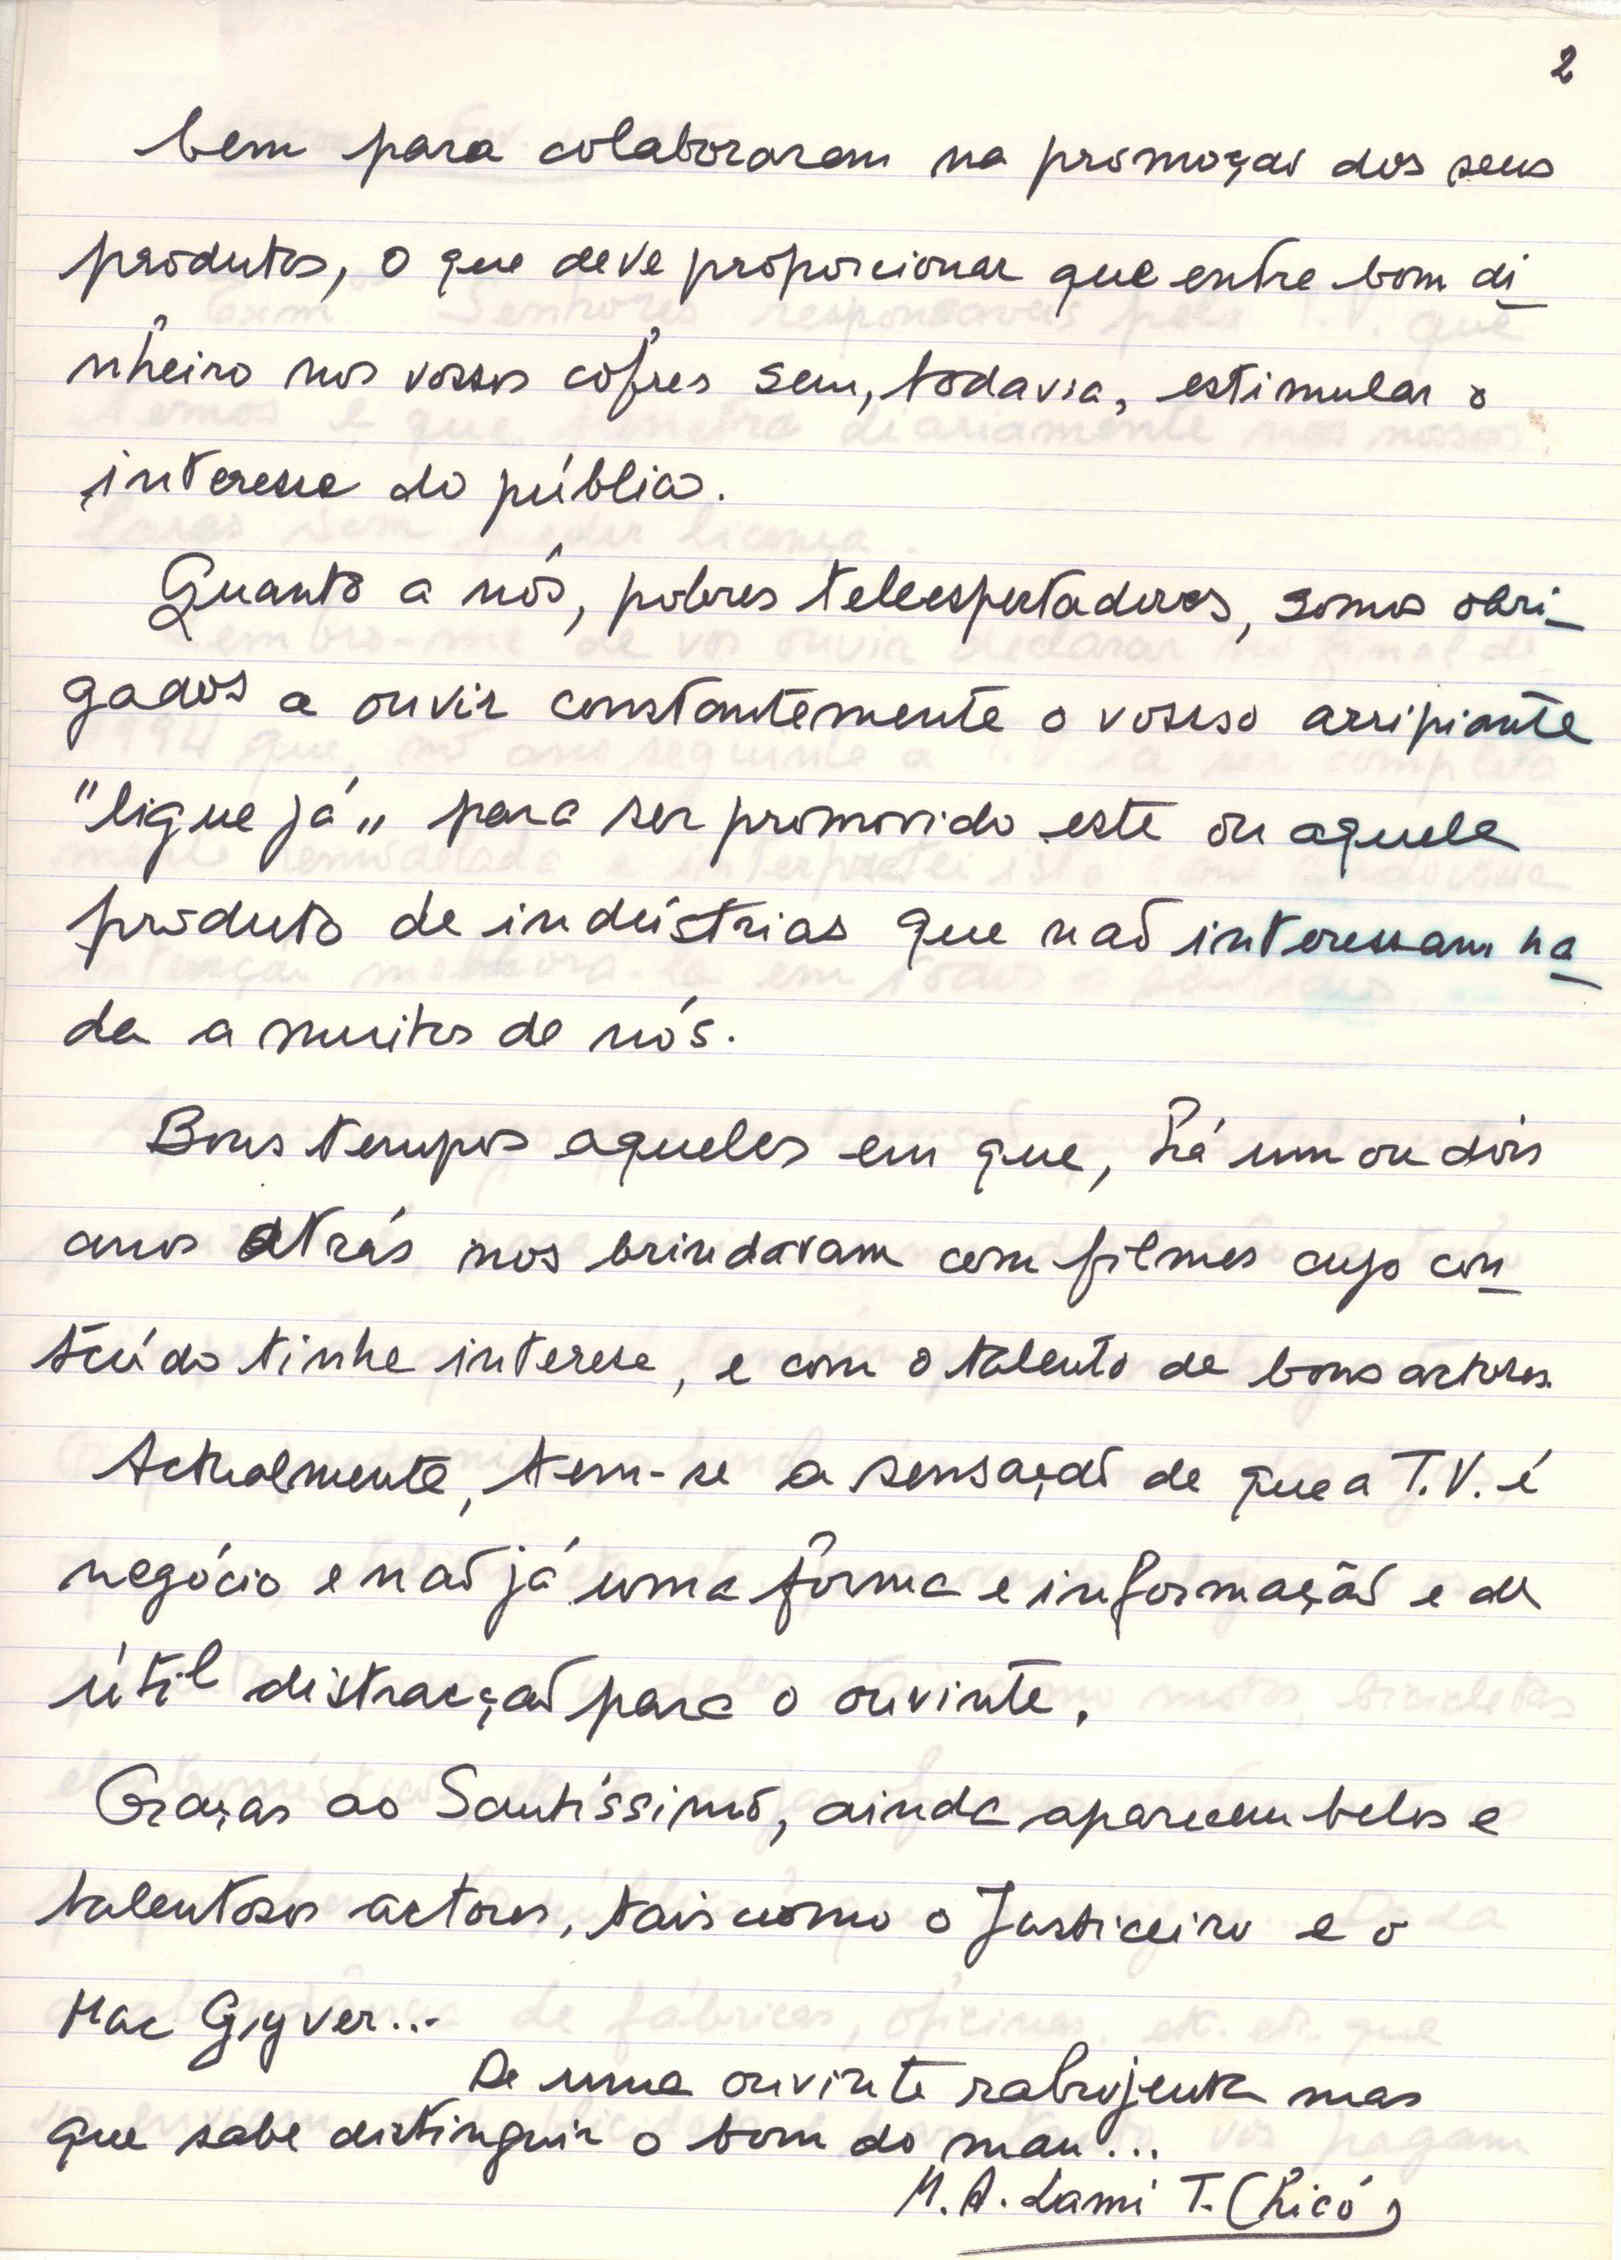 2
bem para colaborarem na promoção dos seus
produtos, o que deve proporcionar que entre bom di-
nheiro nos vossos côfres sem, todavia, estimular o
interesse do público.
Quanto a nós, pobres teleespectadores, somos obri-
gados a ouvir constantemente o vosso arripiante
"ligue já" para ser promovido este ou aquele
produto de indústrias que não interessam na-
da a muitos de nós.
Bons tempos aqueles em que, há um ou dois
anos atrás nos brindavam com filmes cujo con-
teúdo tinha interesse, e com o talento de bons actores.
Actualmente, tem-se a sensação de que a T.V. é
negócio e não já uma fôrma e informação e de
útil distracção para o ouvinte.
Graças ao Santíssimo, ainda aparecem belos e
talentosos actores, tais como o Justiceiro e o
Mac Gyver...
De uma ouvinte rabujenta mas
que sabe distinguir o bom do mau...
M. A. Lami T.